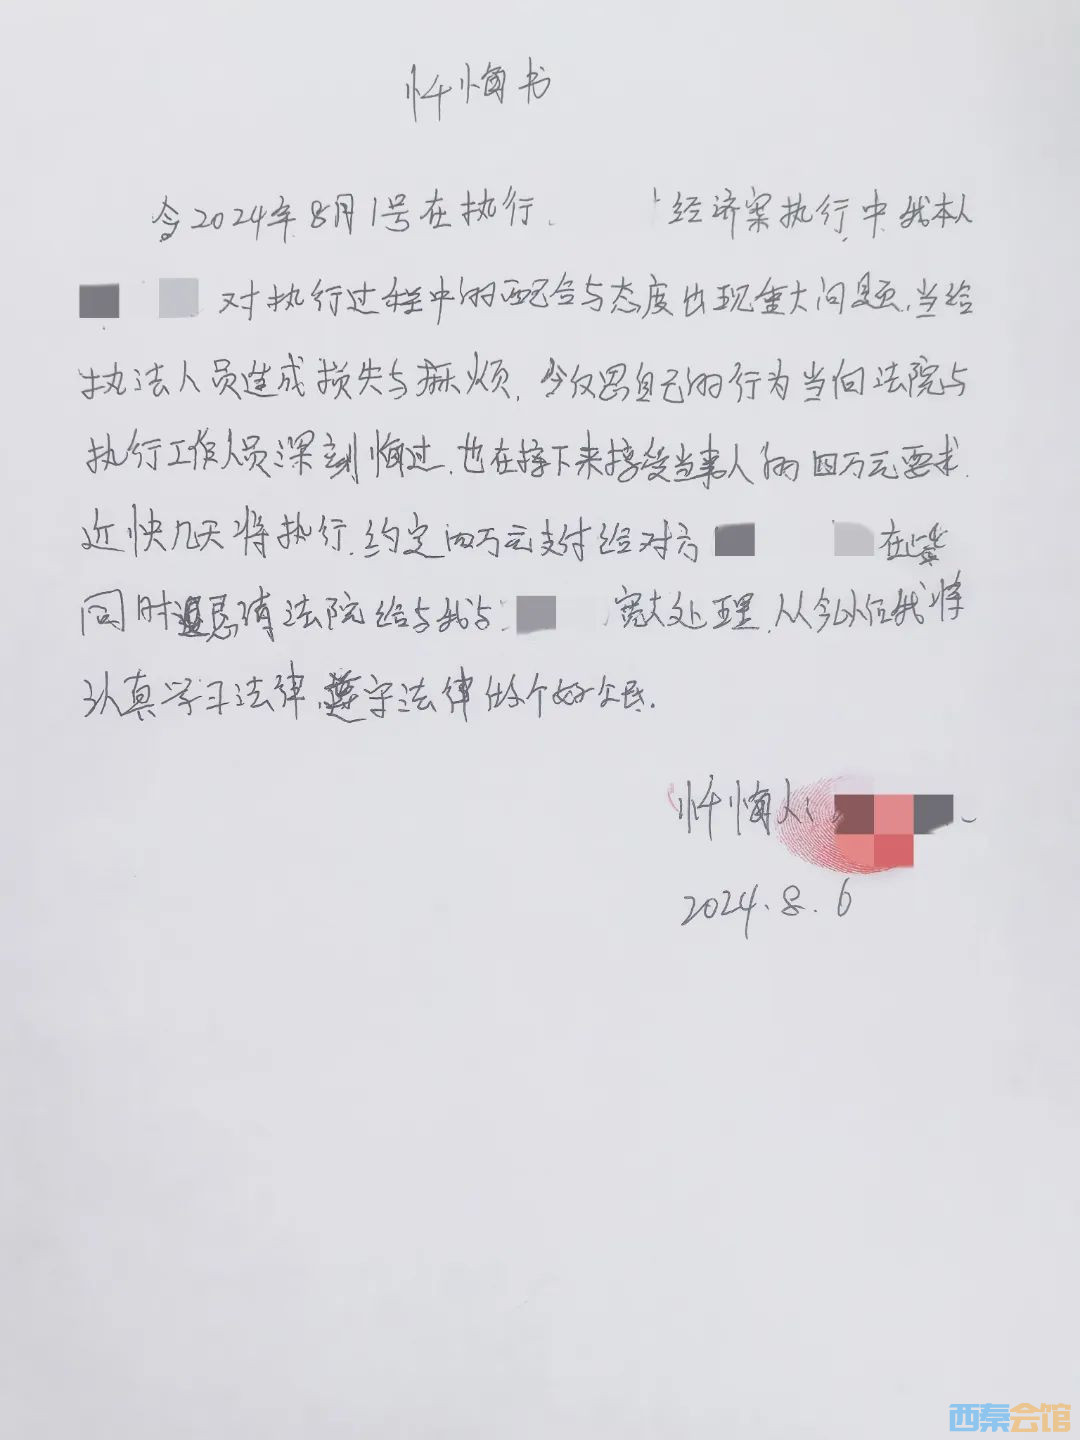 忏悔书
今2024年8月1号在执行 经济案执行中我本人
对执行过程中的配合与态度出现重大问题,当给
执法人员造成损失与麻烦,今仅思自己的行为当向法院与
执行工作人员深刻悔过,也在接下来接受当事人的四万元要求.
近快几天将执行.约定四万元支付给对方 在
同时 法院给与我与 宽大处理,从今以后我将
认真学习法律,遵守法律做个好公民.
忏悔人:
2024.8.6
西秦会馆